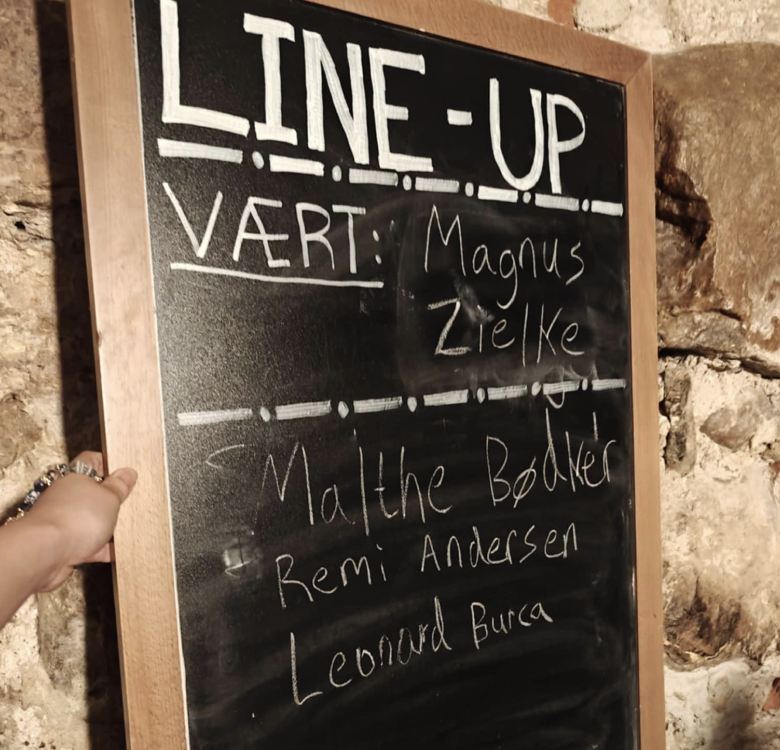 LINE-UP
VÆRT: Magnus
Zielke
Malthe Bødker
Remi Andersen
Leonard Burca